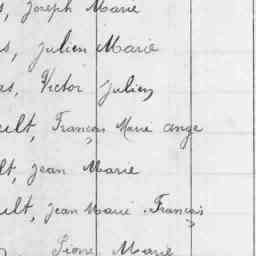 s, Joseph Marie
s, Julien Marie
as, Victor Julien
ult, François Marie ange
lt, Jean Marie
ult, Jean Marie François
Pierre Marie